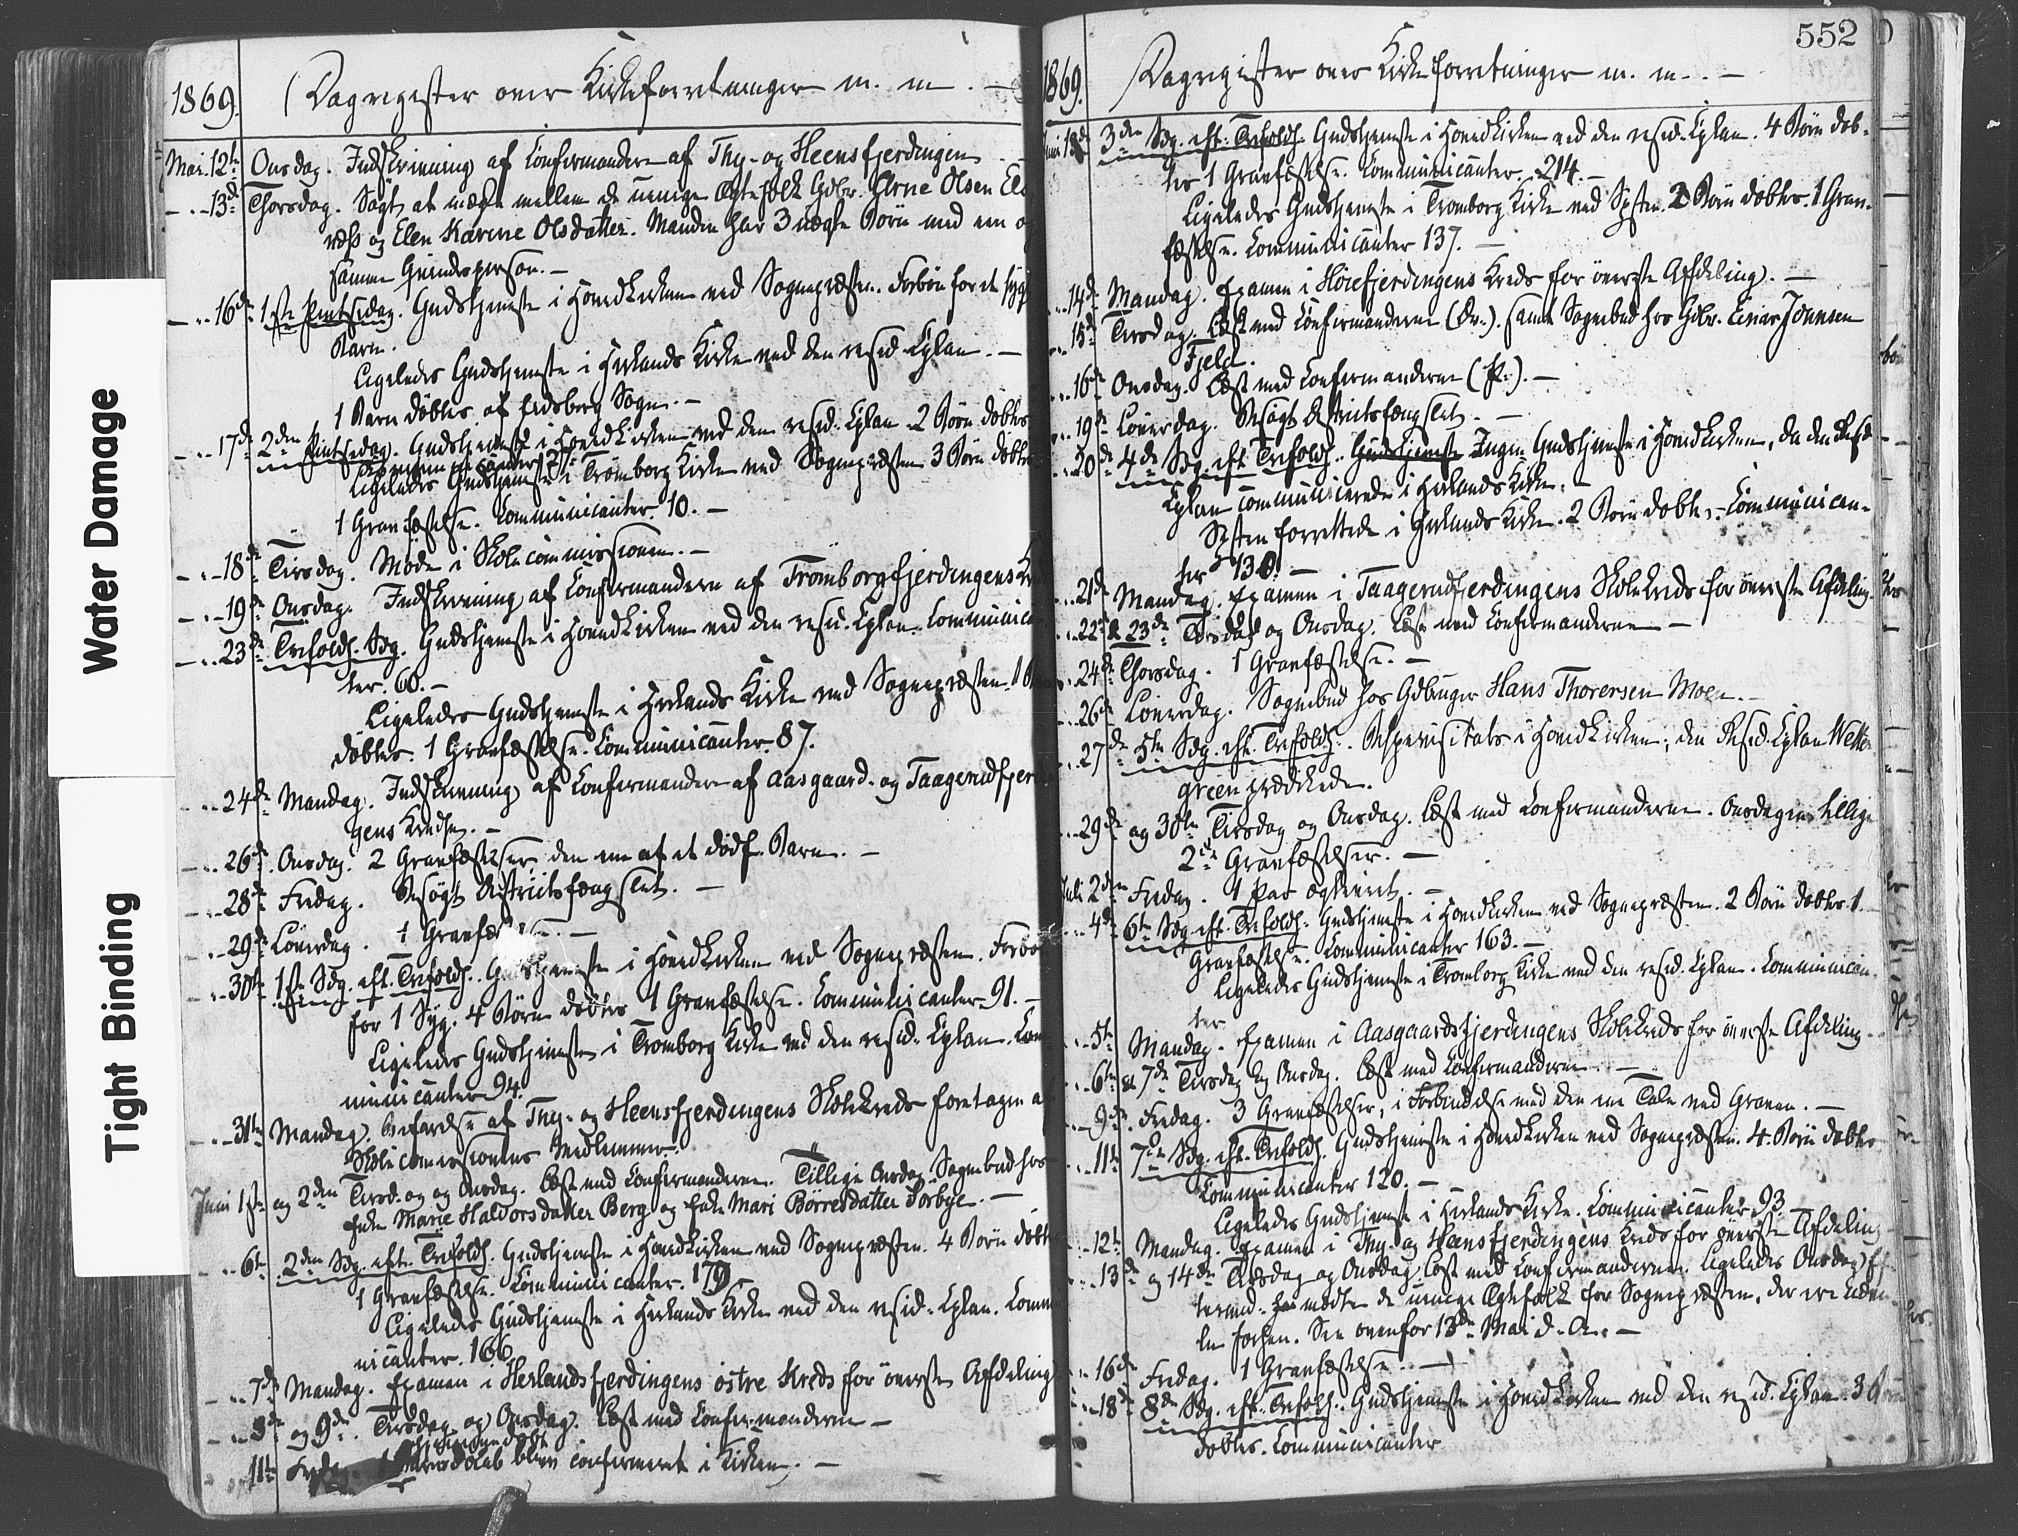 1869.
Dagregister over Kirkeforretninger m. m. —
Mai. 12te Onsdag. Indskrivning af Confirmandere af Thy- og Heensfjerdingen
13de Thorsdag. Søgt at mægle mellem de uenige Ægtefolk Gdbr. Arne Olsen
og Elen Karine Olsdatter. Manden har 3 uægte Børn med een og
samme Qvindesperson. —
16de 1ste Pintsedag. Gudstjeneste i Hovedkirken ved Sognepræsten. Forbøn for et sygt
Barn.
Ligeledes Gudstjeneste i Herlands Kirke ved den resid. Cplan. —
1 Barn døbtes af Eidsberg Sogn. —
17de 2den Pintsedag. Gudstjeneste i Hovedkirken ved den resid. Cplan 2 Børn døbtes
Ligeledes Gudstjeneste i Trømborg Kirke ved Sognepræsten 3 Børn døbtes
1 Gravfæstelse. Communicanter. 10. —
18de Tirsdag. Møde i Skolecommissionen. —
19de Onsdag. Indskrivning af Confirmandere af Trømborgfjerdingens
23de Trefoldh. Sdg. Gudstjeneste i Hovedkirken ved den resid. Cplan. Communican
ter. 60. —
Ligeledes Gudstjeneste i Herlands Kirke ved Sognepræsten. 1
døbtes. 1 Gravfæstelse. Communicanter. 87.
24de Mandag. Indskrivning af Confirmandere af Aasgaard- og Taagerudfjer
gens Kredse. —
26de Onsdag. 2 Gravfæstelser den ene af et dødf. Barn. —
28de Fredag. Besøgt Districtsfængslet. —
29de Løverdag. 1
30te 1ste Sdg. eft. Trefoldh. Gudstjeneste i Hovedkirken ved Sognepræsten. Forbøn
for 1 Syg. 4 Børn døbtes 1 Gravfæstelse. Communicanter 91. —
Ligeledes Gudstjeneste i Trømborg Kirke ved den resid. Cplan. Com
municanter 94.
31te Mandag. Befarelse af Thy- og Heensfjerdingens Skolekreds foretagen af
Skolecomissionens Medlemmer.
Juni 1ste og 2den Tirsdag og Onsdag. Læst med Confirmanderne. Tillige Onsdag Sognebud hos
Enke Marie Haldorsdatter Berg og Enke Mari Børresdatter Torbye. —
6te 2den Sdg. eft. Trefoldh. Gudstjeneste i Hovedkirken ved Sognepræsten. 4 Børn døbtes
1 Gravfæstelse. Communicanter. 179.
Ligeledes Gudstjeneste i Herlands Kirke ved den resid. Cplan. Commu
nicanter. 166
7de Mandag. Examen i Herlandsfjerdingens østre Kreds for øverste Afdeling
8de og 9de Tirsdag og Onsdag. Læst med Confirmanderne —
11te blev confirmeret i Kirken. —
552
1869.
Dagregister over Kirkeforretninger m. m. —
3den Sdg. eft. Trefoldh. Gudstjeneste i Hovedkirken ved den resid. Cplan. 4 Børn døb-
tes 1 Gravfæstelse. Communicanter. 214. —
Ligeledes Gudstjeneste i Trømborg Kirke ved Spsten. 2 Børn døbtes. 1 Grav-
fæstelse. Communicanter 137. —
14de Mandag. Examen i Hærefjerdingens Kreds for øverste Afdeling. —
15de Tirsdag. Læst med Confirmanderne (Dr.). samt Sognebud hos Gdbr. Einar Jonnsen
Fjeld.
16de Onsdag. Læst med Confirmanderne (P.). —
19de Løverdag. Besøgt Districtsfængslet. —
20de 4de Sdg. eft. Trefoldh. Gudstjeneste Ingen Gudstjeneste i Hovedkirken, da den Resid
Cplan communicerede i Herlands Kirke. —
Spsten forrettede i Herlands Kirke. 2 Børn døbtes. Communican-
ter 130. —
21de Mandag. Examen i Taagerudfjerdingens Skolekreds for øverste Afdeling
22de & 23de Tirsdag og Onsdag. Læst med Confirmanderne —
24de Thorsdag. 1 Gravfæstelse. —
26de Løverdag. Sognebud hos Gdbruger Hans Thoversen Moen. —
27de 5te Sdg. eft. Trefoldh. Bispevisitats i Hovedkirken; den Resid. Cplan Wetter
green prædikede.
29de og 30te Tirsdag og Onsdag. Læst med Confirmanderne. Onsdagen tillige
2de Gravfæstelser. —
Juli 2den Fredag. 1 Par ægteviet. —
4de 6te Sdg. eft. Trefoldh. Gudstjeneste i Hovedkirken ved Sognepræsten. 2 Børn døbtes. 1
Gravfæstelse. Communicanter 163. —
Ligeledes Gudstjeneste i Trømborg Kirke ved den resid. Cplan. Communican-
ter
5te Mandag. Examen i Aasgaardsfjerdingens Skolekreds for øverste Afdeling.
6te & 7de Tirsdag og Onsdag. Læst med Confirmanderne. —
9de Fredag. 3 Gravfæstelser, i Forbindelse med den ene Tale ved Graven. —
11te 7de Sdg. eft. Trefoldh. Gudstjeneste i Hovedkirken ved Sognepræsten. 4 Børn døbtes
Communicanter 120. —
Ligeledes Gudstjeneste i Herlands Kirke. Communicanter 93.
12te Mandag. Examen i Thy- og Heensfjerdingens Kreds for øverste Afdeling
13de og 14de Tirsdag og Onsdag Læst med Confirmanderne. Ligeledes Onsdag Ef-
termd. mødte de uenige Ægtefolk for Sognepræsten, der
Se ovenfor 13de Mai d. A. —
16de Fredag. 1 Gravfæstelse. —
18de 8de Sdg. eft. Trefoldh. Gudstjeneste i Hovedkirken ved den resid. Cplan. 3 Børn
døbtes. Communicanter
Water Damage
Tight Binding